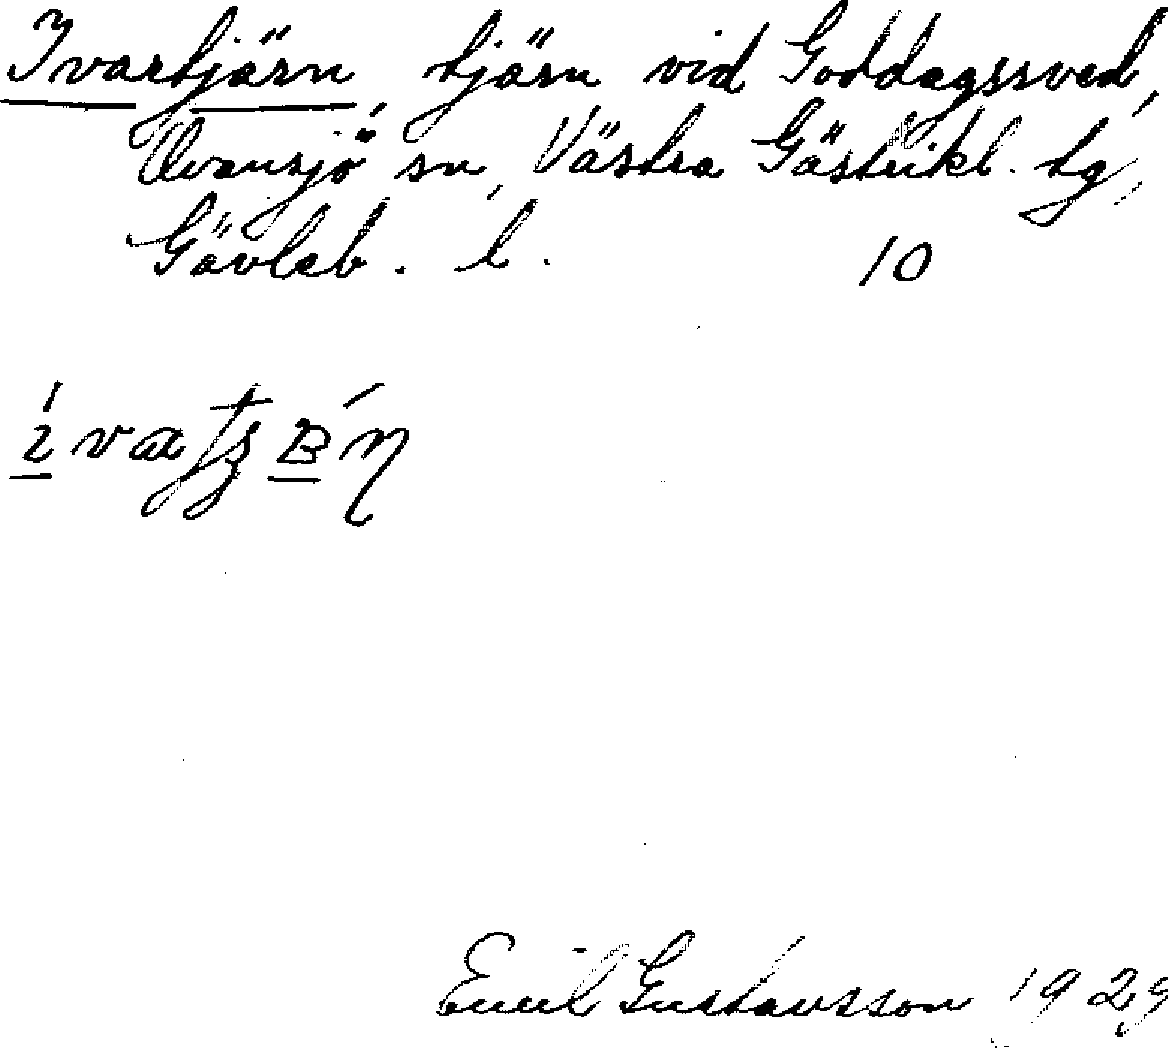 Ivartjärn, tjärn vid Goddagssved,
Ovansjö sn, Västra Gästrikl. tg,
Gävleb. l. 10
Emil Gustavsson 1929